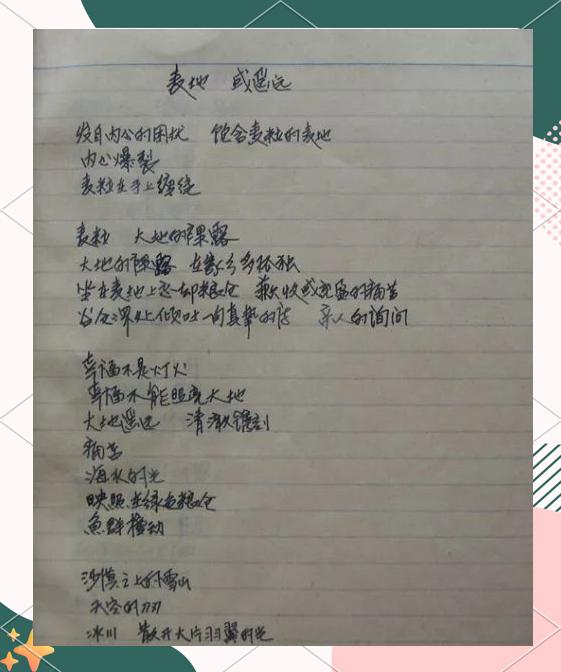 麦地 或遥远
发自内心的困扰 饱含麦粒的麦地
内心爆裂
麦粒在手上缠绕
麦粒 大地的裸露
大地的裸露 在家乡多孤独
坐在麦地上忘却粮仓 歉收或充盈的痛苦
谷仓深处倾吐一句真挚的诗 亲人的询问
幸福不是灯火
幸福不能照亮大地
大地遥远 清澈镌刻
痛苦
海水的光
映照在绿色粮仓
鱼鲜撞动
沙漠之上的雪山
天空的刀刃
冰川 散开大片羽翼的光